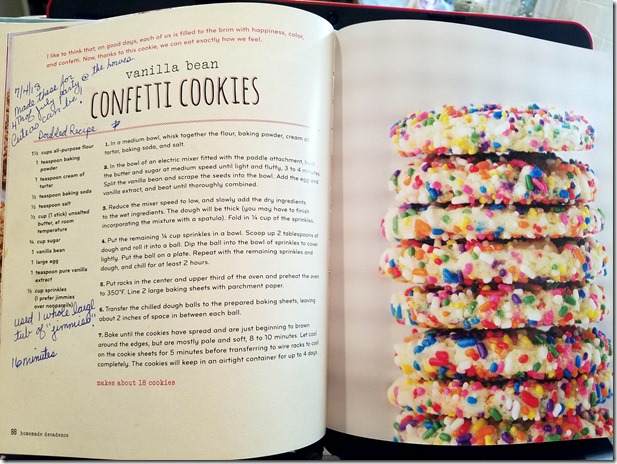 I like to think that, on good days, each of us is filled to the brim with happiness, color,
and confetti. Now, thanks to this cookie, we can eat exactly how we feel.
vanilla bean
CONFETTI COOKIES
7/4/13
Made these for
4th of July party @ the
Cute as can be!
Doubled Recipe
1½ cups all-purpose flour
1 teaspoon baking
powder
1 teaspoon cream of
tartar
½ teaspoon baking soda
½ teaspoon salt
½ cup (1 stick) unsalted
butter, at room
temperature
¾ cup sugar
1 vanilla bean
1 large egg
1 teaspoon pure vanilla
extract
½ cup sprinkles
(I prefer jimmies
over nonpareils)
used 1 whole large
tub of "jimmies"
16 minutes
1. In a medium bowl, whisk together the flour, baking powder, cream of
tartar, baking soda, and salt.
2. In the bowl of an electric mixer fitted with the paddle attachment,
the butter and sugar at medium speed until light and fluffy, 3 to 4 minutes.
Split the vanilla bean and scrape the seeds into the bowl. Add the egg and
vanilla extract, and beat until thoroughly combined.
3. Reduce the mixer speed to low, and slowly add the dry ingredients
to the wet ingredients. The dough will be thick (you may have to finish
incorporating the mixture with a spatula). Fold in ¼ cup of the sprinkles.
4. Put the remaining ¼ cup sprinkles in a bowl. Scoop up 2 tablespoons of
dough and roll it into a ball. Dip the ball into the bowl of sprinkles to cover
lightly. Put the ball on a plate. Repeat with the remaining sprinkles and
dough, and chill for at least 2 hours.
5. Put racks in the center and upper third of the oven and preheat the oven
to 350°F. Line 2 large baking sheets with parchment paper.
6. Transfer the chilled dough balls to the prepared baking sheets, leaving
about 2 inches of space in between each ball.
7. Bake until the cookies have spread and are just beginning to brown
around the edges, but are mostly pale and soft, 8 to 10 minutes. Let cool
on the cookie sheets for 5 minutes before transferring to wire racks to cool
completely. The cookies will keep in an airtight container for up to 4 days.
makes about 18 cookies
88 homemade decadence